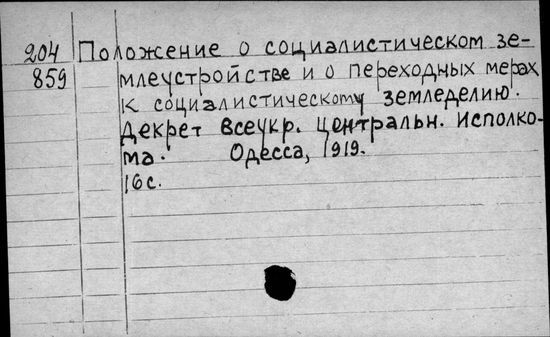 204 Положение о социалистическом зе-
859 млеустройстве и о переходных мерах
к социалистическому земледелию.
Декрет Всеукр. центральн. исполко-
ма. Одесса, 1919.
16с.